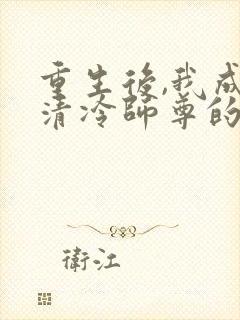 重生後,我成
清冷師尊的
衛江